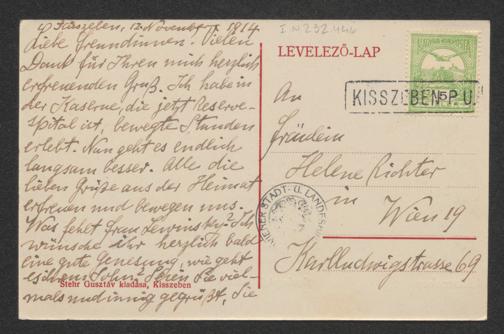 Kisszeben, 12. November 1914
Liebe Freundinnen. Vielen
Dank für Ihren mich herzlich
erfreuenden Gruß. Ich habe in
der Kaserne, die jetzt Reserve-
spital ist, bewegte Stunden
erlebt. Nun geht es endlich
langsam besser. Alle die
lieben Grüße aus der Heimat
erfreuen und bewegen uns.
Was fehlt Frau Lewinsky? Ich
wünsche ihr herzlich bald
eine gute Genesung, wie geht
es ihrem Sohn? Seien Sie viel-
mals und innig gegrüßt, Sie
Stehr Gusztáv kiadása, Kisszeben
I.N. 232.446
LEVELEZŐ-LAP
KISSZEBEN P.U.
5
An
Fräulein
Helene Richter
in
Wien 19
Karlludwigstrasse 69
WIENER STADT- U. LANDESBIBL